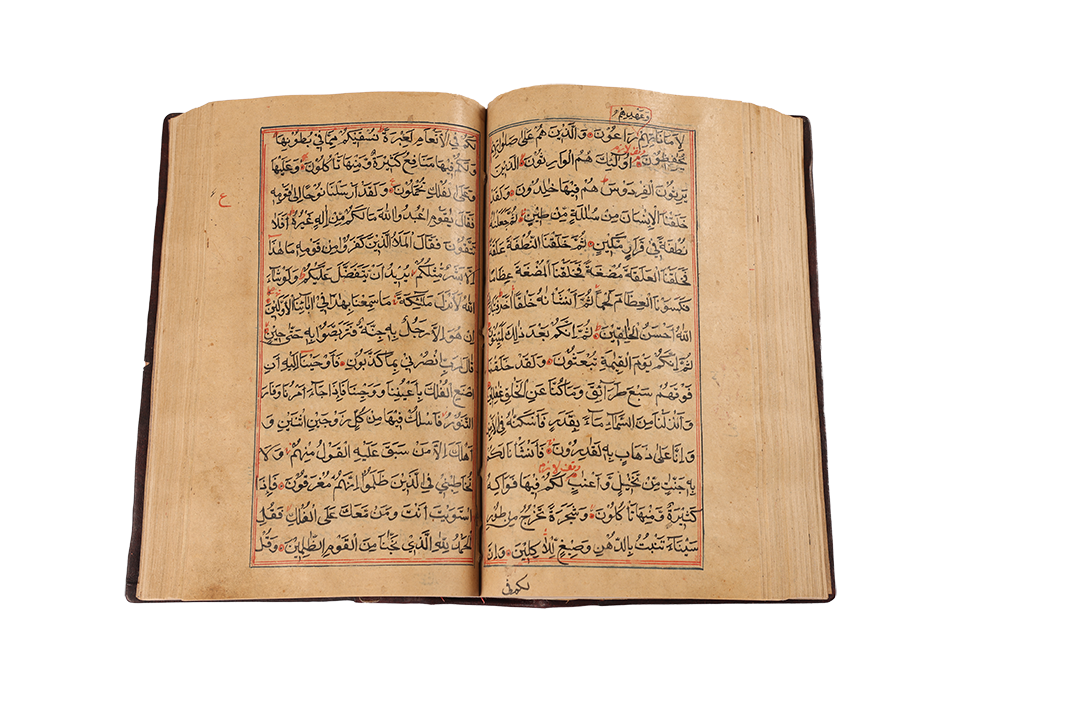 وعهدهم
لِاَمَانَاتِهِمْ رَاعُوْنَ وَالَّذِيْنَ هُمْ عَلَى صَلَوٰتِهِمْ
يُحَافِظُوْنَ اُولٰئِكَ هُمُ الْوَارِثُوْنَ الَّذِيْنَ
يَرِثُوْنَ الْفِرْدَوْسَ هُمْ فِيْهَا خٰلِدُوْنَ وَلَقَدْ
خَلَقْنَا الْاِنْسَانَ مِنْ سُلَالَةٍ مِّنْ طِيْنٍ ثُمَّ جَعَلْنَاهُ
نُطْفَةً فِيْ قَرَارٍ مَّكِيْنٍ ثُمَّ خَلَقْنَا النُّطْفَةَ عَلَقَةً
فَخَلَقْنَا الْعَلَقَةَ مُضْغَةً فَخَلَقْنَا الْمُضْغَةَ عِظَامًا
فَكَسَوْنَا الْعِظَامَ لَحْمًا ثُمَّ اَنْشَأْنٰهُ خَلْقًا اٰخَرَ فَتَبٰرَكَ
اللّٰهُ اَحْسَنُ الْخٰلِقِيْنَ ثُمَّ اِنَّكُمْ بَعْدَ ذٰلِكَ لَمَيِّتُوْنَ
ثُمَّ اِنَّكُمْ يَوْمَ الْقِيٰمَةِ تُبْعَثُوْنَ وَلَقَدْ خَلَقْنَا
فَوْقَكُمْ سَبْعَ طَرَائِقَ وَمَا كُنَّا عَنِ الْخَلْقِ غٰفِلِيْنَ
وَاَنْزَلْنَا مِنَ السَّمَاءِ مَاءً بِقَدَرٍ فَاَسْكَنّٰهُ فِي الْاَرْضِ
وَاِنَّا عَلٰى ذَهَابٍ بِهٖ لَقٰدِرُوْنَ فَاَنْشَأْنَا لَكُمْ
بِهٖ جَنّٰتٍ مِّنْ نَّخِيْلٍ وَاَعْنَابٍ لَكُمْ فِيْهَا فَوَاكِهُ
كَثِيْرَةٌ وَمِنْهَا تَأْكُلُوْنَ وَشَجَرَةً تَخْرُجُ مِنْ طُوْرِ
سَيْنَاءَ تَنْبُتُ بِالدُّهْنِ وَصِبْغٍ لِّلْاٰكِلِيْنَ وَاِنَّ
لكم في
لَكُمْ فِي الْاَنْعَامِ لَعِبْرَةً نُسْقِيْكُمْ مِمَّا فِيْ بُطُوْنِهَا
وَلَكُمْ فِيْهَا مَنَافِعُ كَثِيْرَةٌ وَمِنْهَا تَأْكُلُوْنَ وَعَلَيْهَا
وَعَلَى الْفُلْكِ تُحْمَلُوْنَ وَلَقَدْ اَرْسَلْنَا نُوْحًا اِلٰى قَوْمِهٖ
فَقَالَ يٰقَوْمِ اعْبُدُوا اللّٰهَ مَا لَكُمْ مِنْ اِلٰهٍ غَيْرُهٗ اَفَلَا
تَتَّقُوْنَ فَقَالَ الْمَلَاُ الَّذِيْنَ كَفَرُوْا مِنْ قَوْمِهٖ مَا هٰذَا
اِلَّا بَشَرٌ مِّثْلُكُمْ يُرِيْدُ اَنْ يَتَفَضَّلَ عَلَيْكُمْ وَلَوْ شَاءَ
اللّٰهُ لَاَنْزَلَ مَلٰئِكَةً مَا سَمِعْنَا بِهٰذَا فِيْ اٰبَائِنَا الْاَوَّلِيْنَ
اِنْ هُوَ اِلَّا رَجُلٌ بِهٖ جِنَّةٌ فَتَرَبَّصُوْا بِهٖ حَتّٰى حِيْنٍ
قَالَ رَبِّ انْصُرْنِيْ بِمَا كَذَّبُوْنِ فَاَوْحَيْنَا اِلَيْهِ اَنِ
اصْنَعِ الْفُلْكَ بِاَعْيُنِنَا وَوَحْيِنَا فَاِذَا جَاءَ اَمْرُنَا وَفَارَ
التَّنُّوْرُ فَاسْلُكْ فِيْهَا مِنْ كُلٍّ زَوْجَيْنِ اثْنَيْنِ وَ
اَهْلَكَ اِلَّا مَنْ سَبَقَ عَلَيْهِ الْقَوْلُ مِنْهُمْ وَلَا
تُخَاطِبْنِيْ فِي الَّذِيْنَ ظَلَمُوْا اِنَّهُمْ مُغْرَقُوْنَ فَاِذَا
اسْتَوَيْتَ اَنْتَ وَمَنْ مَعَكَ عَلَى الْفُلْكِ فَقُلِ
الْحَمْدُ لِلّٰهِ الَّذِيْ نَجّٰنَا مِنَ الْقَوْمِ الظّٰلِمِيْنَ وَقُلْ
ع